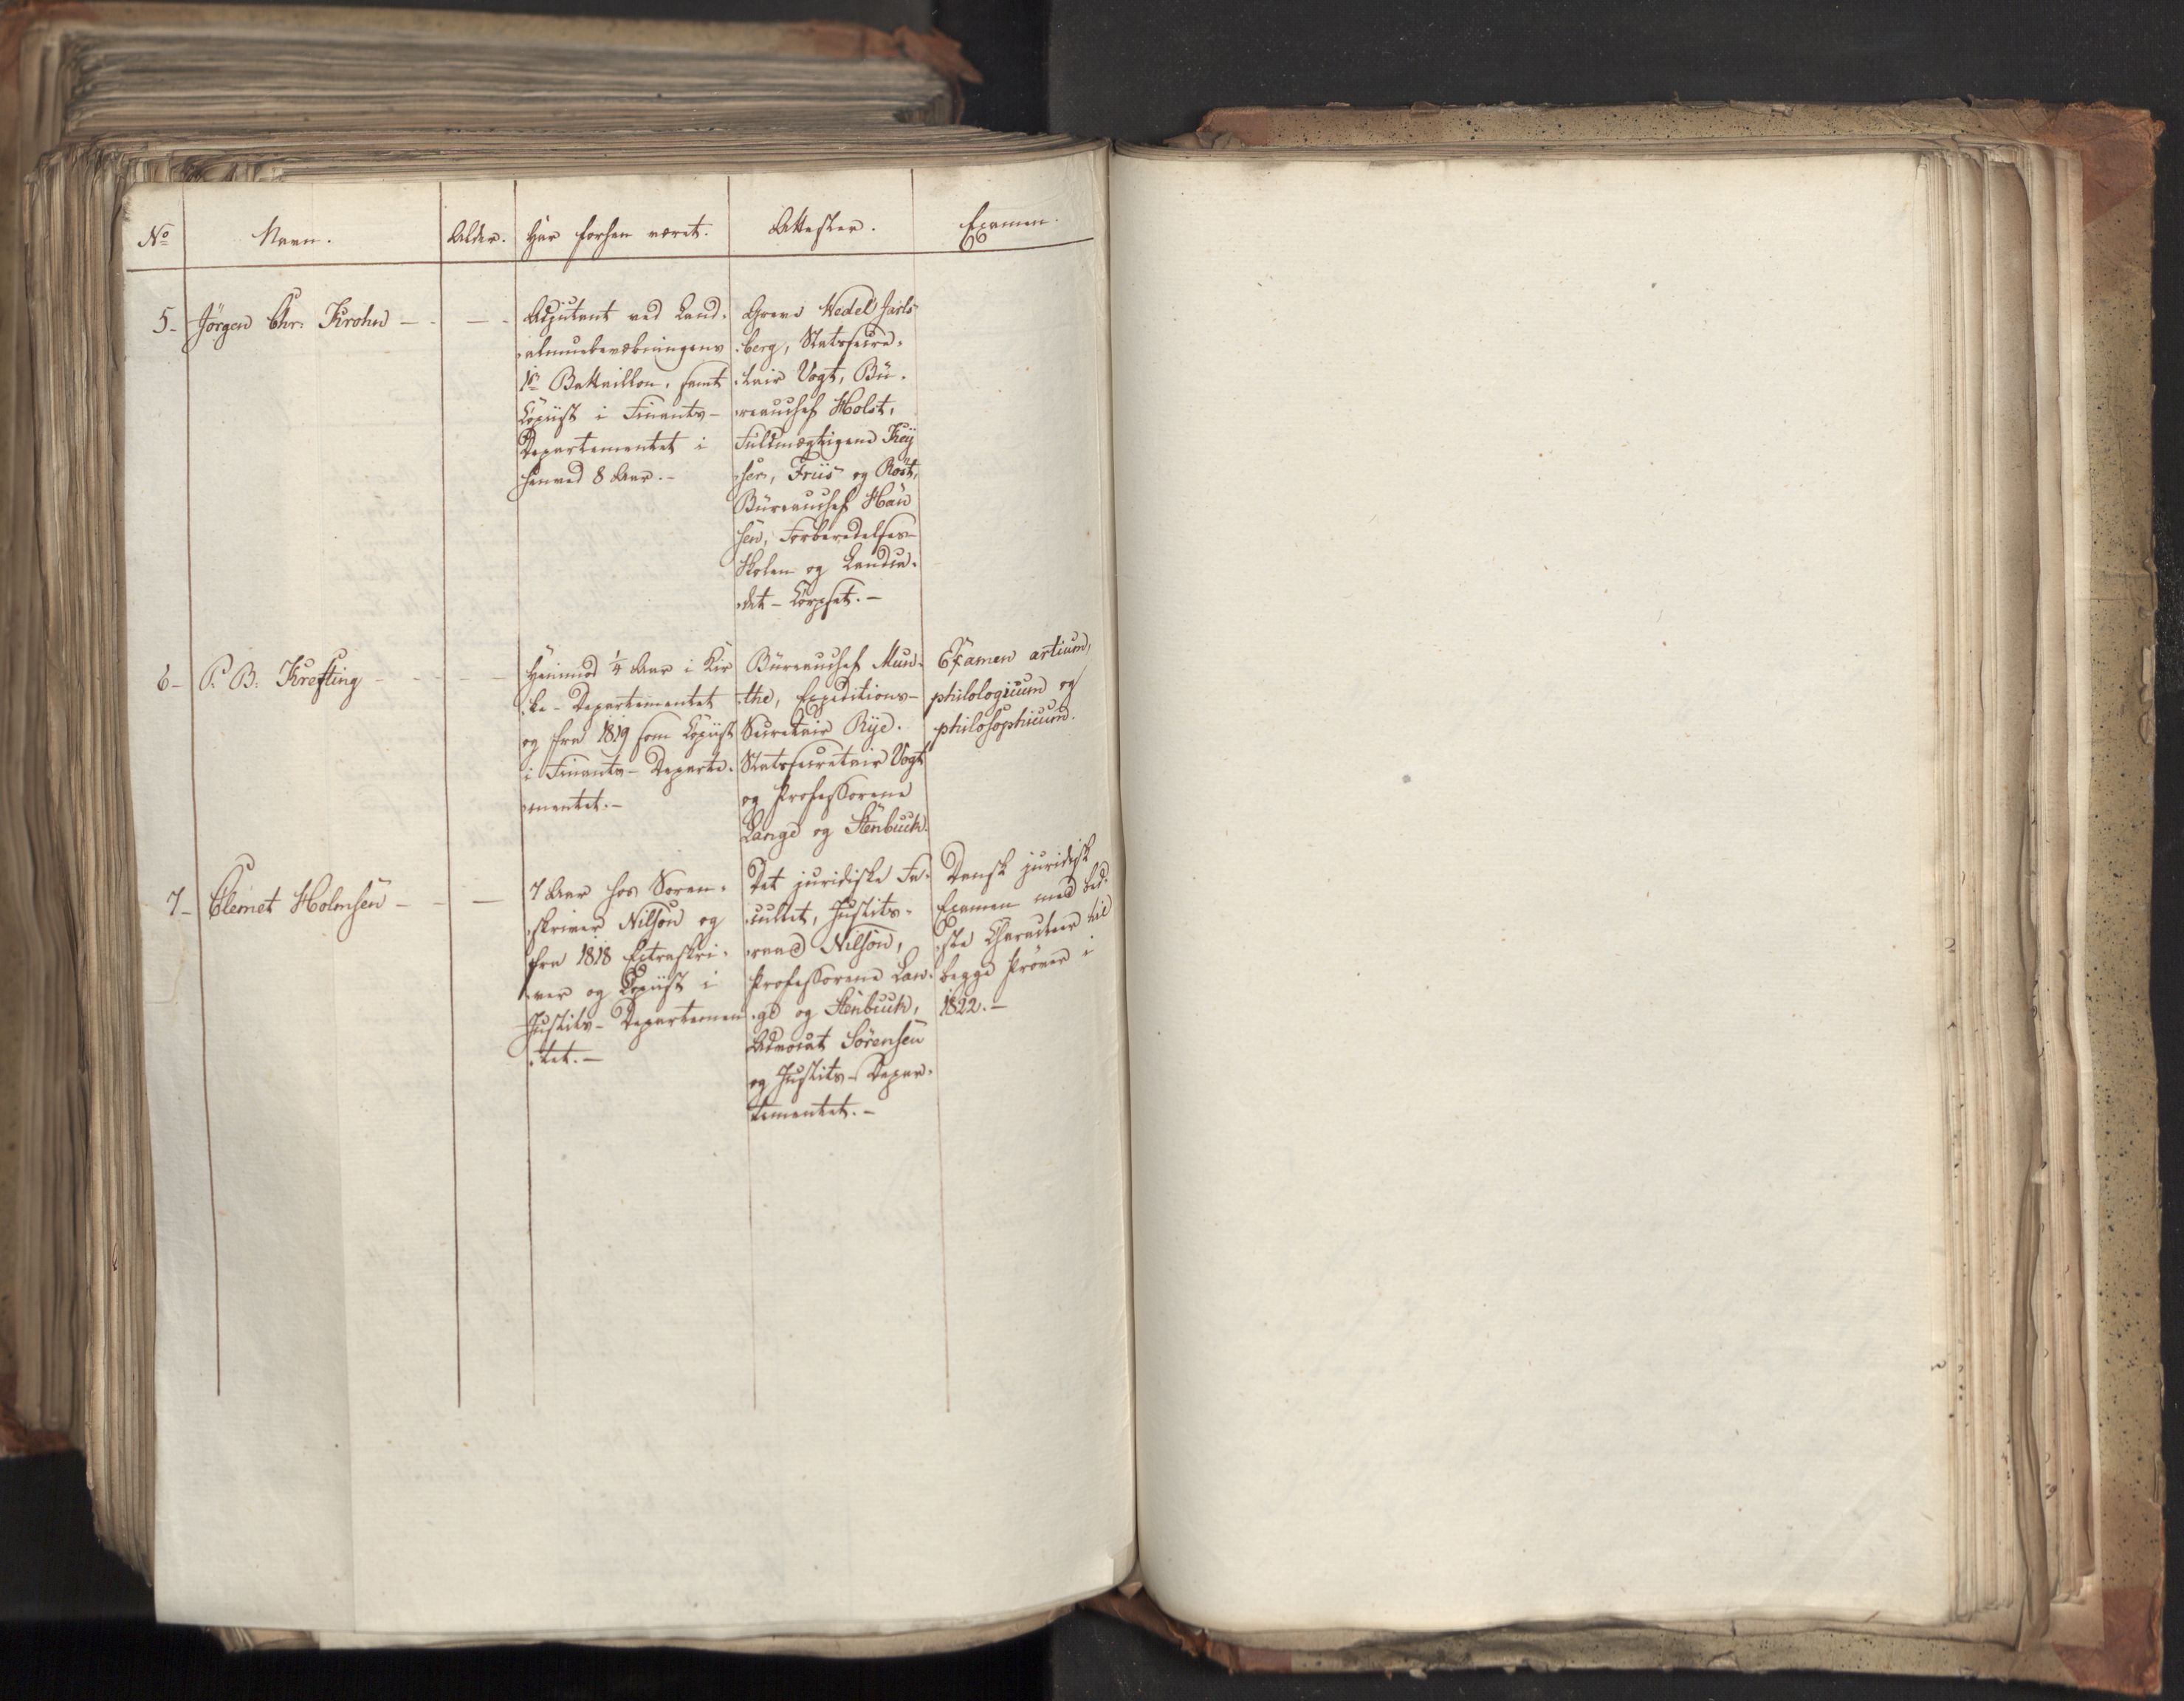 No Navn. Alder. Har forhen været. Attester. Examen.
5- Jørgen Chr: Krohn - - - -
Adjutant ved Land-
-almuebevæbningens
1ste Battaillon, samt
Copiist i Finants-
Departementet i
henved 8 Aar.-
Greve Wedel Jarls-
-berg, Statssecre-
-tair Vogt, Bü-
-reauchef Holst,
Fuldmægtigene Key
-ser, Friis og Rost,
Büreauchef Han
sen, Forberedelses-
Skolen og Landca-
-det-Corpset.-
6- P. B. Krefting - - - - -
Henimod 1/4 Aar i Kir
-ke-Departementet
og fra 1819 som Copiist
i Finants-Departe-
-mentet.-
Büreauchef Mun-
-the, Expeditions-
Secretair Rye.
Statssecretair Vogt
og Professorene
Lange og Stenbuch.
Examen artium,
philologicum og
philosophicum.
7- Clemet Holmsen - - -
7 Aar hos Soren-
-skriver Nilson og
fra 1818 Extraskri-
-ver og Copiist i
Justits-Departemen
-tet.-
Det juridiske Fa-
-cultet, Justits-
-raad Nilson,
Professorene Lan-
-ge og Stenbuch,
Advocat Sørensen
og Justits-Depar-
-tementet.-
Dansk juridisk
Examen med bed-
-ste Characteer til
begge Prøver i
1822.-